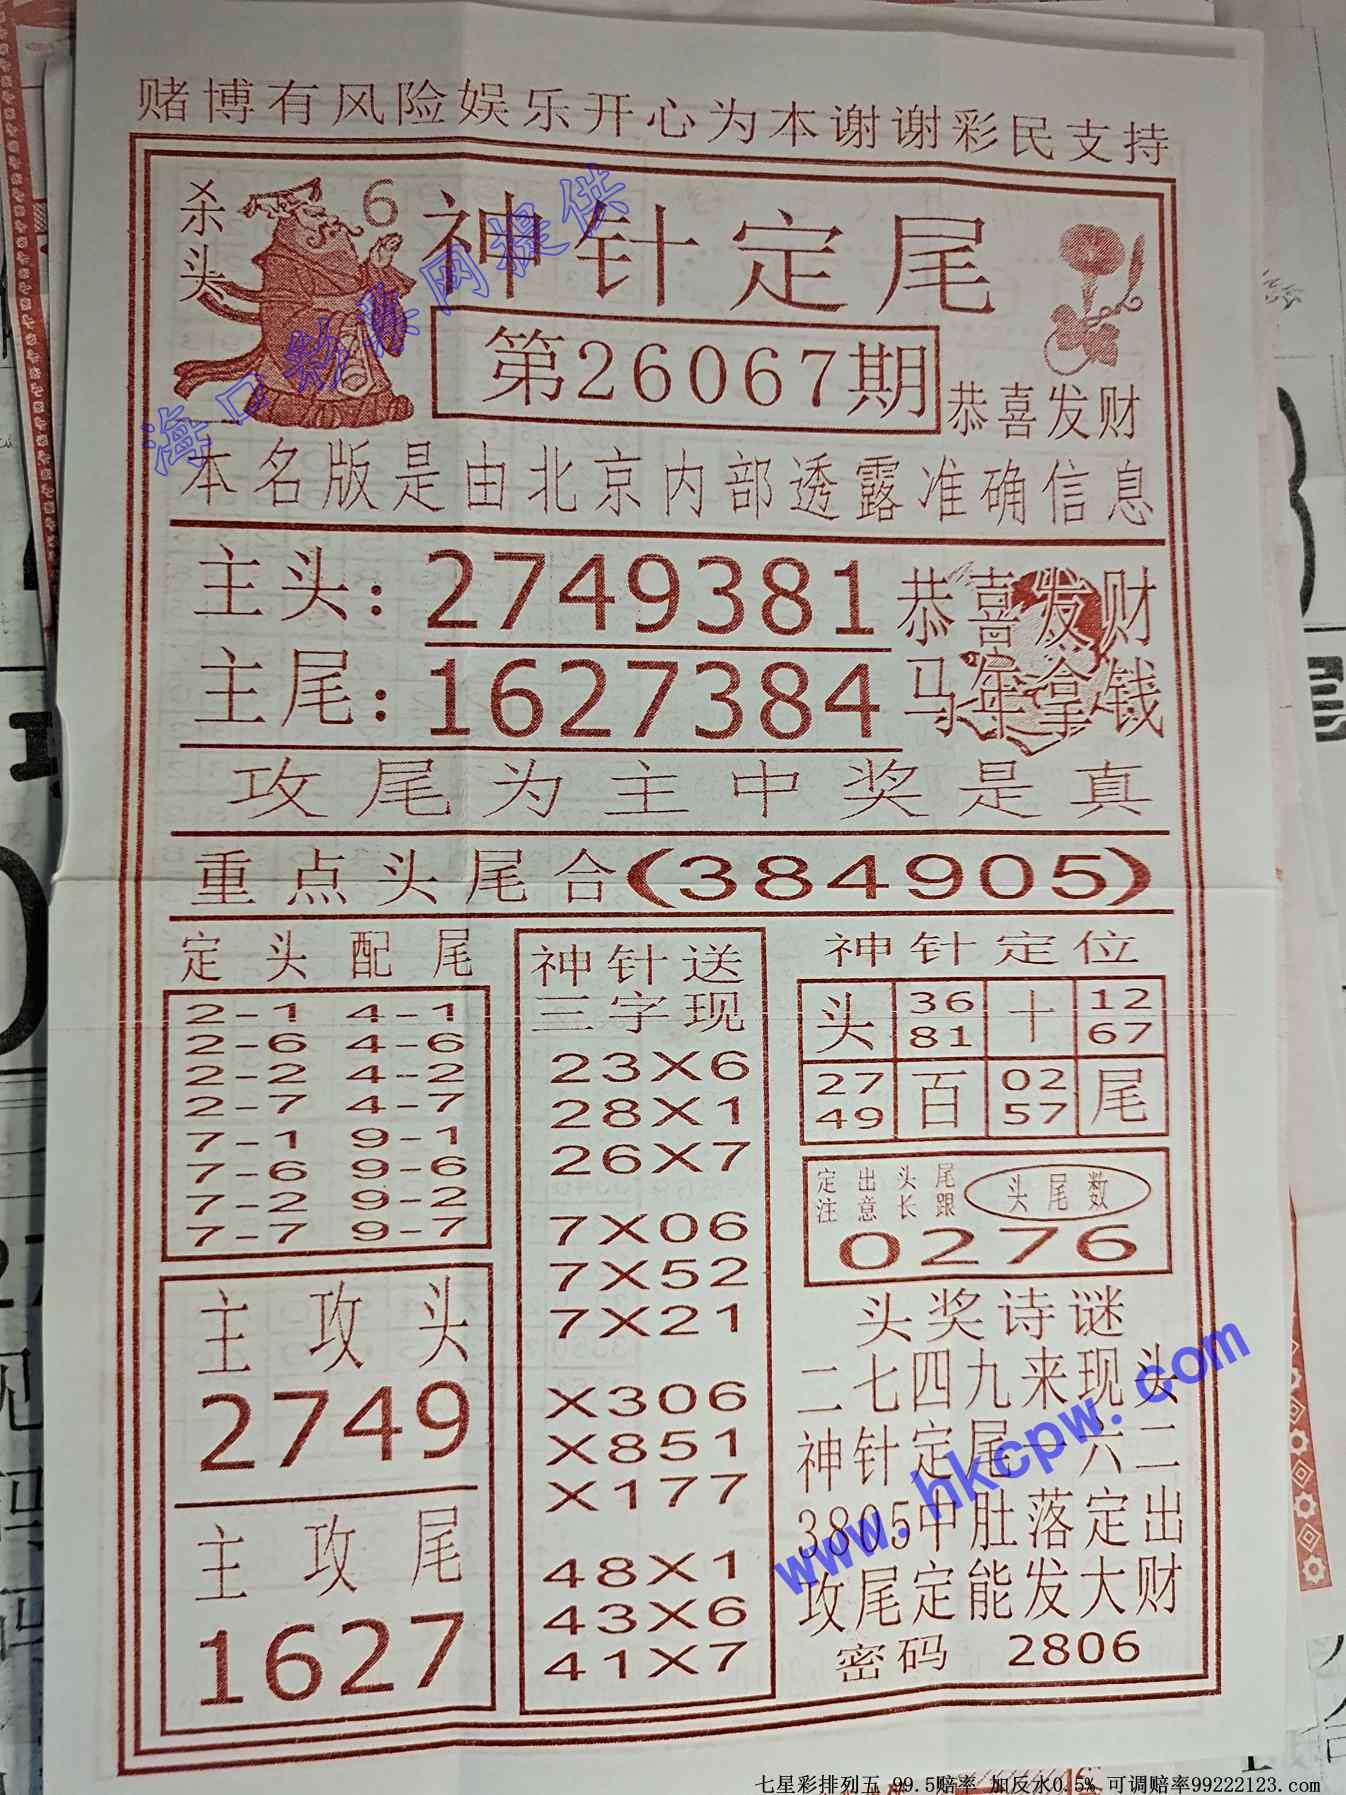 赌博有风险娱乐开心为本谢谢彩民支持
杀头 6
神针定尾
第26067期
恭喜发财
海口彩票网提供
本名版是由北京内部透露准确信息
主头:2749381
恭喜发财
主尾:1627384
马年拿钱
攻尾为主中奖是真
重点头尾合(384905)
定头配尾
2-1 4-1
2-6 4-6
2-2 4-2
2-7 4-7
7-1 9-1
7-6 9-6
7-2 9-2
7-7 9-7
主攻头
2749
主攻尾
1627
神针送
三字现
23X6
28X1
26X7
7X06
7X52
7X21
X306
X851
X177
48X1
43X6
41X7
神针定位
头 36 十 12
81 67
27 百 02 尾
49 57
定出头尾
注意长跟
头尾数
0276
头奖诗谜
二七四九来现头
神针定尾一六二
3805中肚落定出
攻尾定能发大财
密码 2806
www.hkcpw.com
七星彩排列五 99.5赔率 加反水0.5% 可调赔率99222123.com